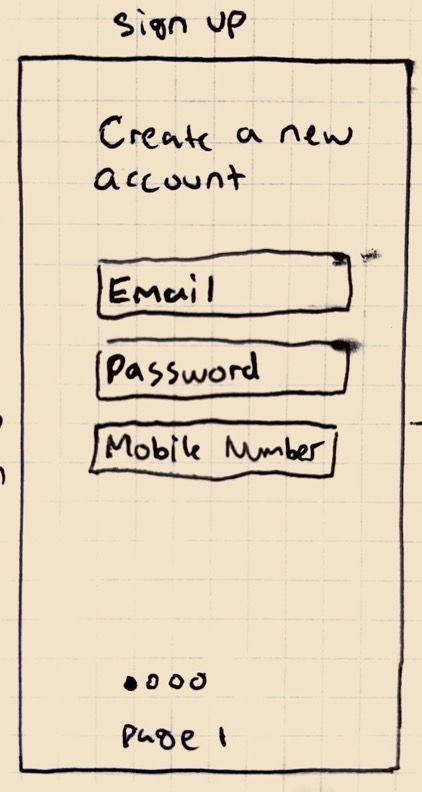 Sign up
Create a new
account
Email
Password
Mobile Number
Page 1